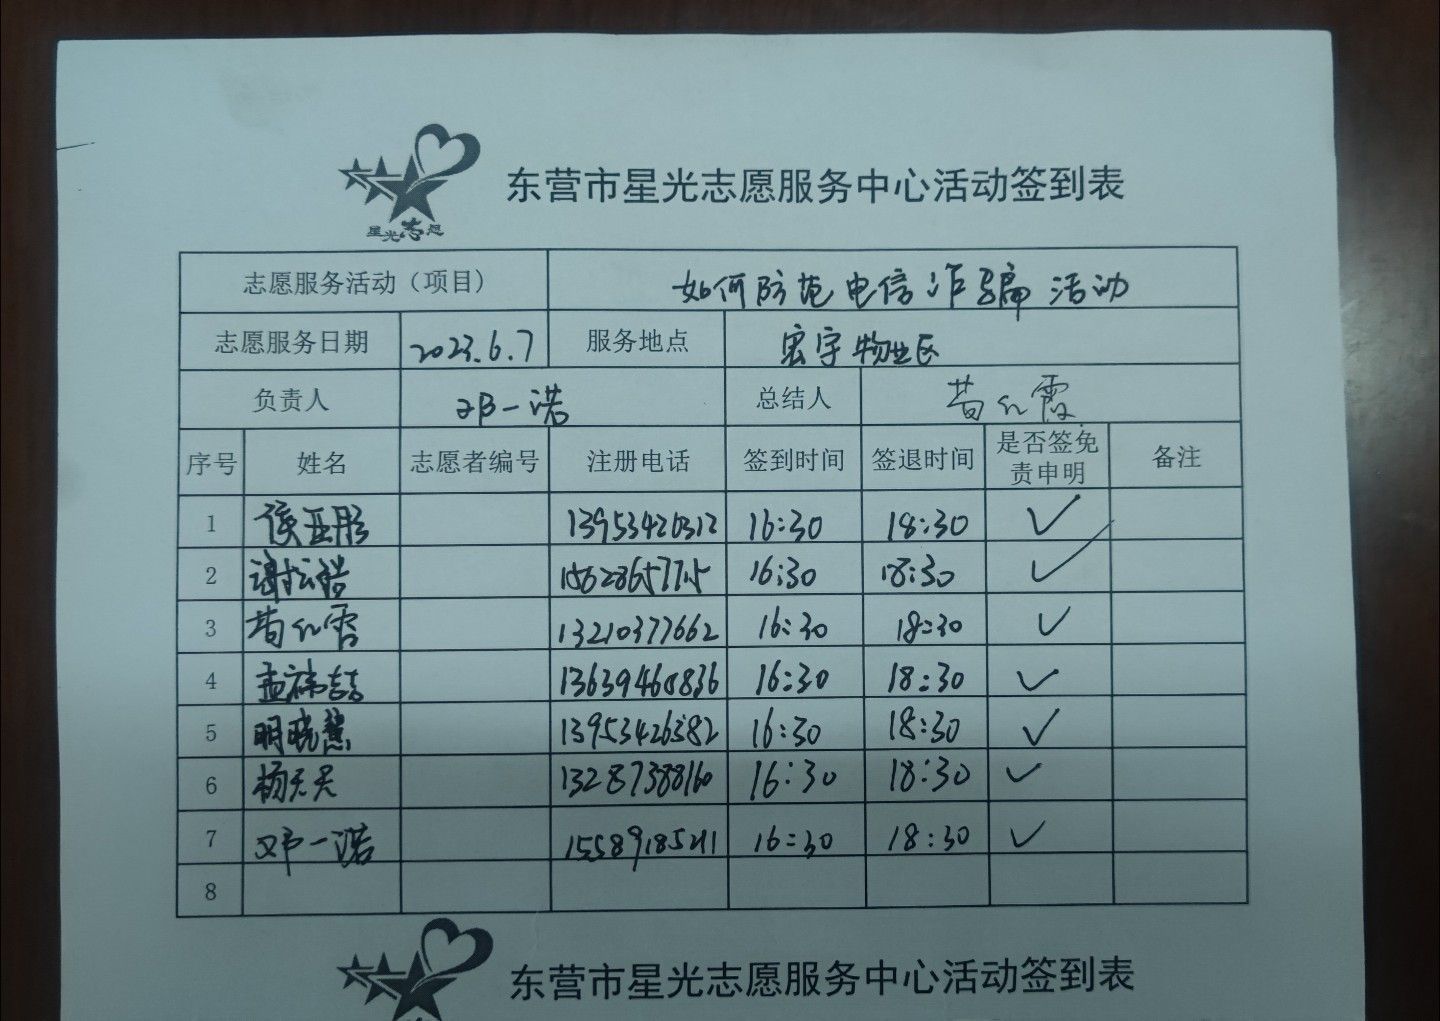 星光志愿
东营市星光志愿服务中心活动签到表
志愿服务活动（项目） 如何防范电信诈骗活动
志愿服务日期 2023.6.7 服务地点 宏宇物业区
负责人 邓一诺 总结人 苟红霞
序号 姓名 志愿者编号 注册电话 签到时间 签退时间 是否签免责申明 备注
1 侯亚彤 13953420312 16:30 18:30 ✓
2 谢松皓 15628657715 16:30 18:30 ✓
3 苟红霞 13210377662 16:30 18:30 ✓
4 孟祎喆 16:30 18:30 ✓
5 明晓慧 13953426382 16:30 18:30 ✓
6 杨天天 13287388160 16:30 18:30 ✓
7 邓一诺 15589185211 16:30 18:30 ✓
8
东营市星光志愿服务中心活动签到表